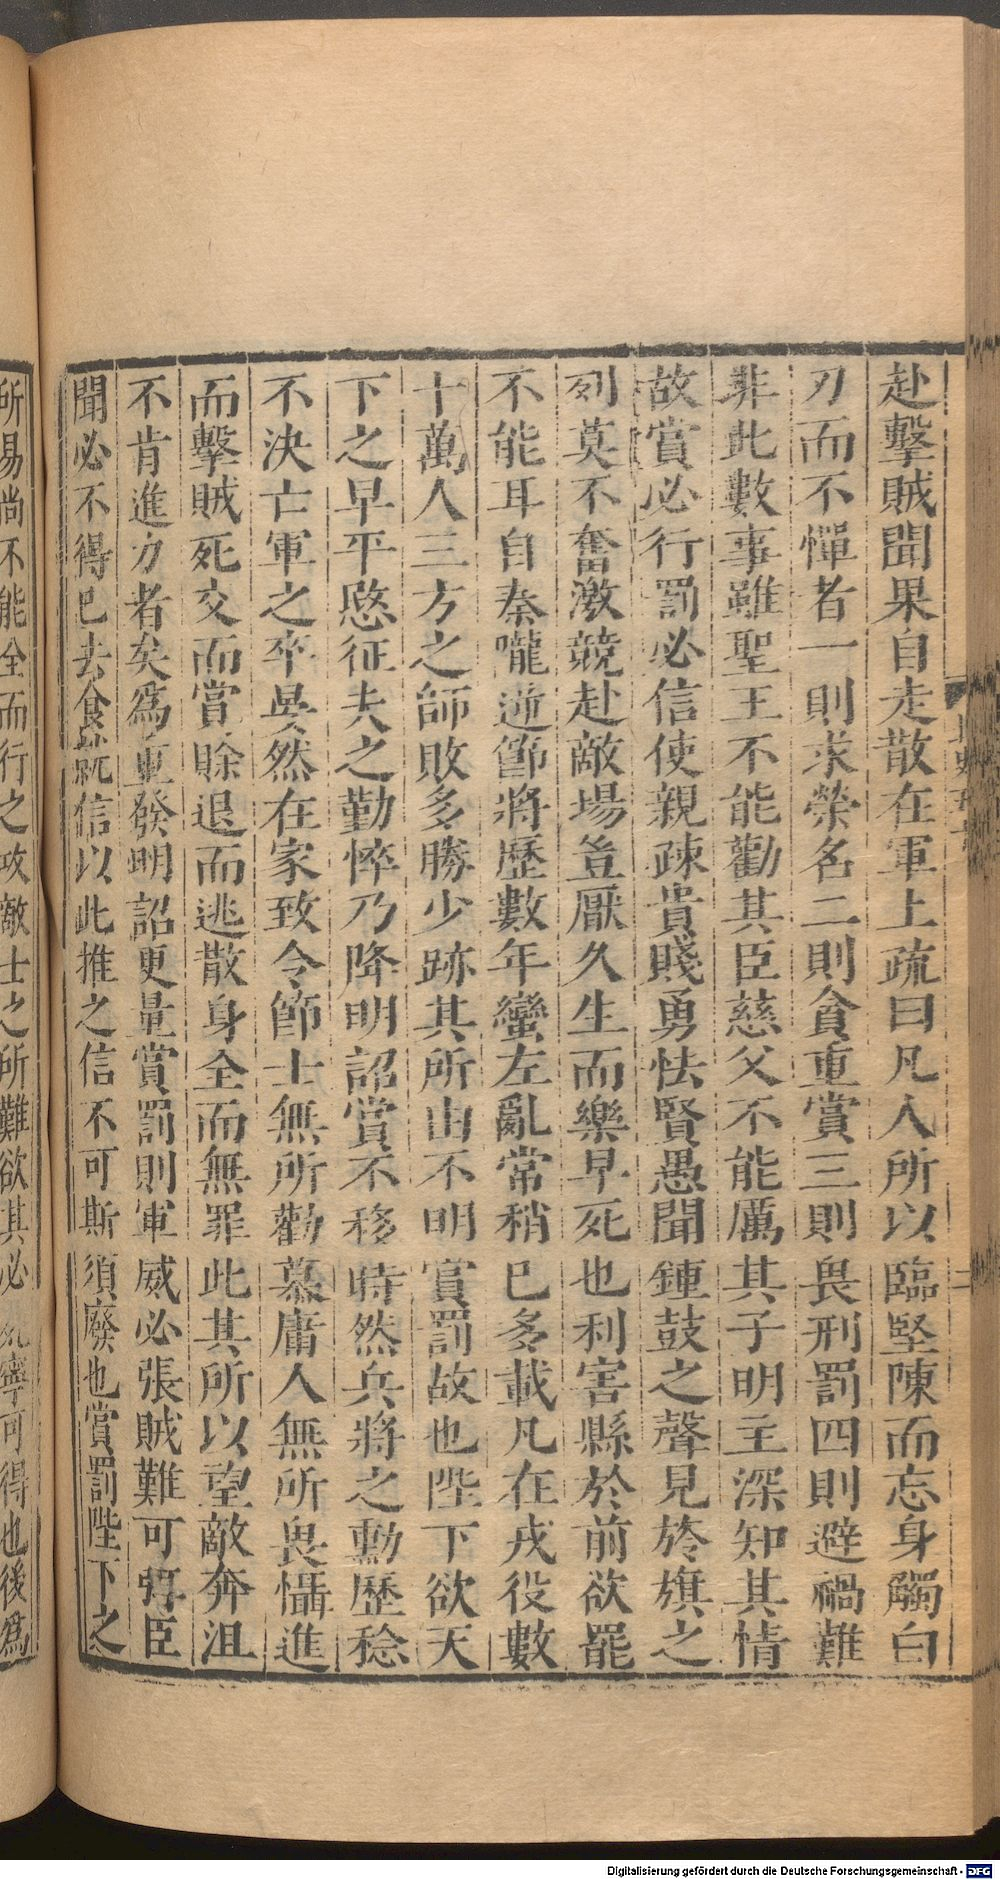 赴擊賊聞果自走散在軍上疏曰凡人所以臨堅陳而忘身觸白
刃而不憚者一則求榮名二則貪重賞三則畏刑罰四則避禍難
非此數事雖聖王不能勸其臣慈父不能厲其子明主深知其情
故賞必行罰必信使親疎貴賤勇怯賢愚聞鍾鼓之聲見於旗之
列莫不奮激競赴敵場豈厭久生而樂早死也利害縣於前欲罷
不能耳自秦隴逆節將歷數年蠻左亂常稍已多載凡在戎役數
十萬人三方之師敗多勝少跡其所由不明賞罰故也陛下欲天
下之早平愍征夫之勤悴乃降明詔賞不移時然兵將之勳歷稔
不決亡軍之卒晏然在家致令節士無所勸慕庸人無所畏懾進
而擊賊死交而賞賒退而逃散身全而無罪此其所以望敵奔沮
不肯進力者矣爲重發明詔更量賞罰則軍威必張賊難可弭臣
聞必不得已去食就信以此推之信不可斯須廢也賞罰陛下之
所易尚不能全而行之攻敵士之所難欲其必 寧可得也後爲
二
Digitalisierung gefördert durch die Deutsche Forschungsgemeinschaft - DFG